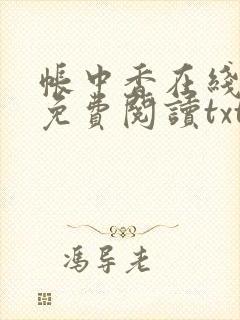 帳中香在綫
免費閱讀txt
馮导老